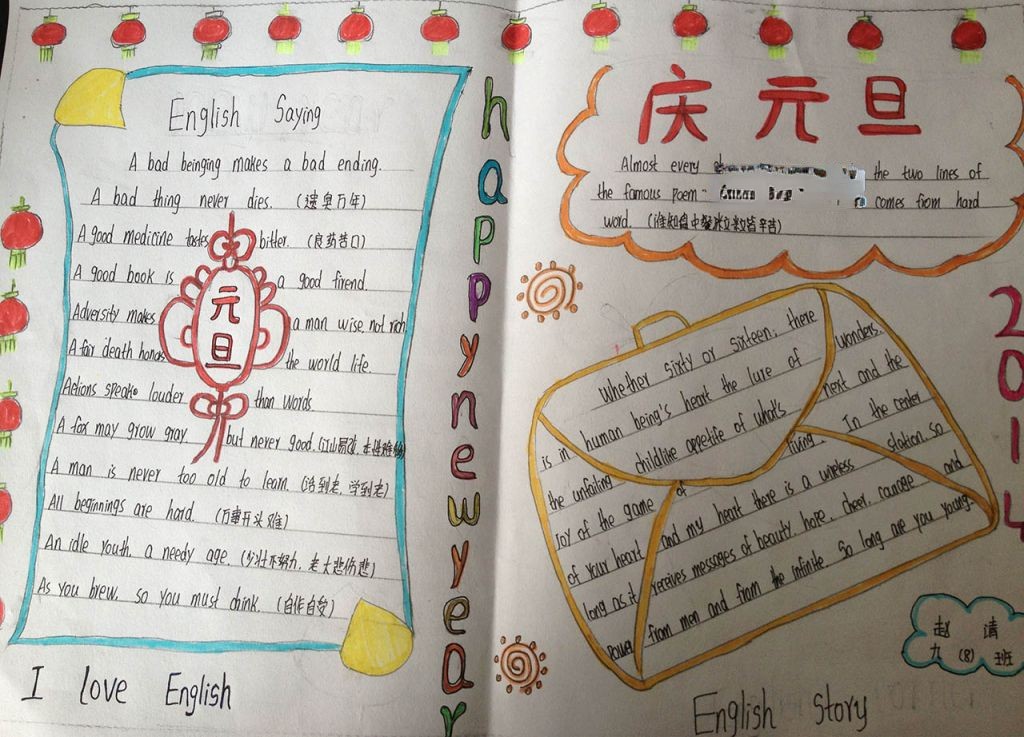 English Saying
A bad beinging makes a bad ending.
A bad thing never dies. (遗臭万年)
A good medicine tastes bitter. (良药苦口)
A good book is a good friend.
Adversity makes a man wise, not rich
A fair death honors the world life.
Actions speak louder than words
A fox may grow gray, but never good. (江山易改,本性难移)
A man is never too old to learn (活到老,学到老)
All beginnings are hard. (万事开头难)
An idle youth, a needy age. (少壮不努力,老大悲伤悲)
As you brew, so you must drink. (自作自受)
元旦
I love English
happy new year
庆元旦
Almost every the two lines of
the famous poem " comes from hard
word. (谁知盘中餐,粒粒皆辛苦)
2014
Whether sixty or sixteen, there
is in human being's heart the lure of wonders.
the unfailing childlike appetite of what's next and the
Joy of the game of living. In the center
of your heart and my heart there is a wireless station. so
long as it receives messages of beauty, hope, cheer, courage and
power from men and from the infinite. So long are you young.
赵清
九(8)班
English Story